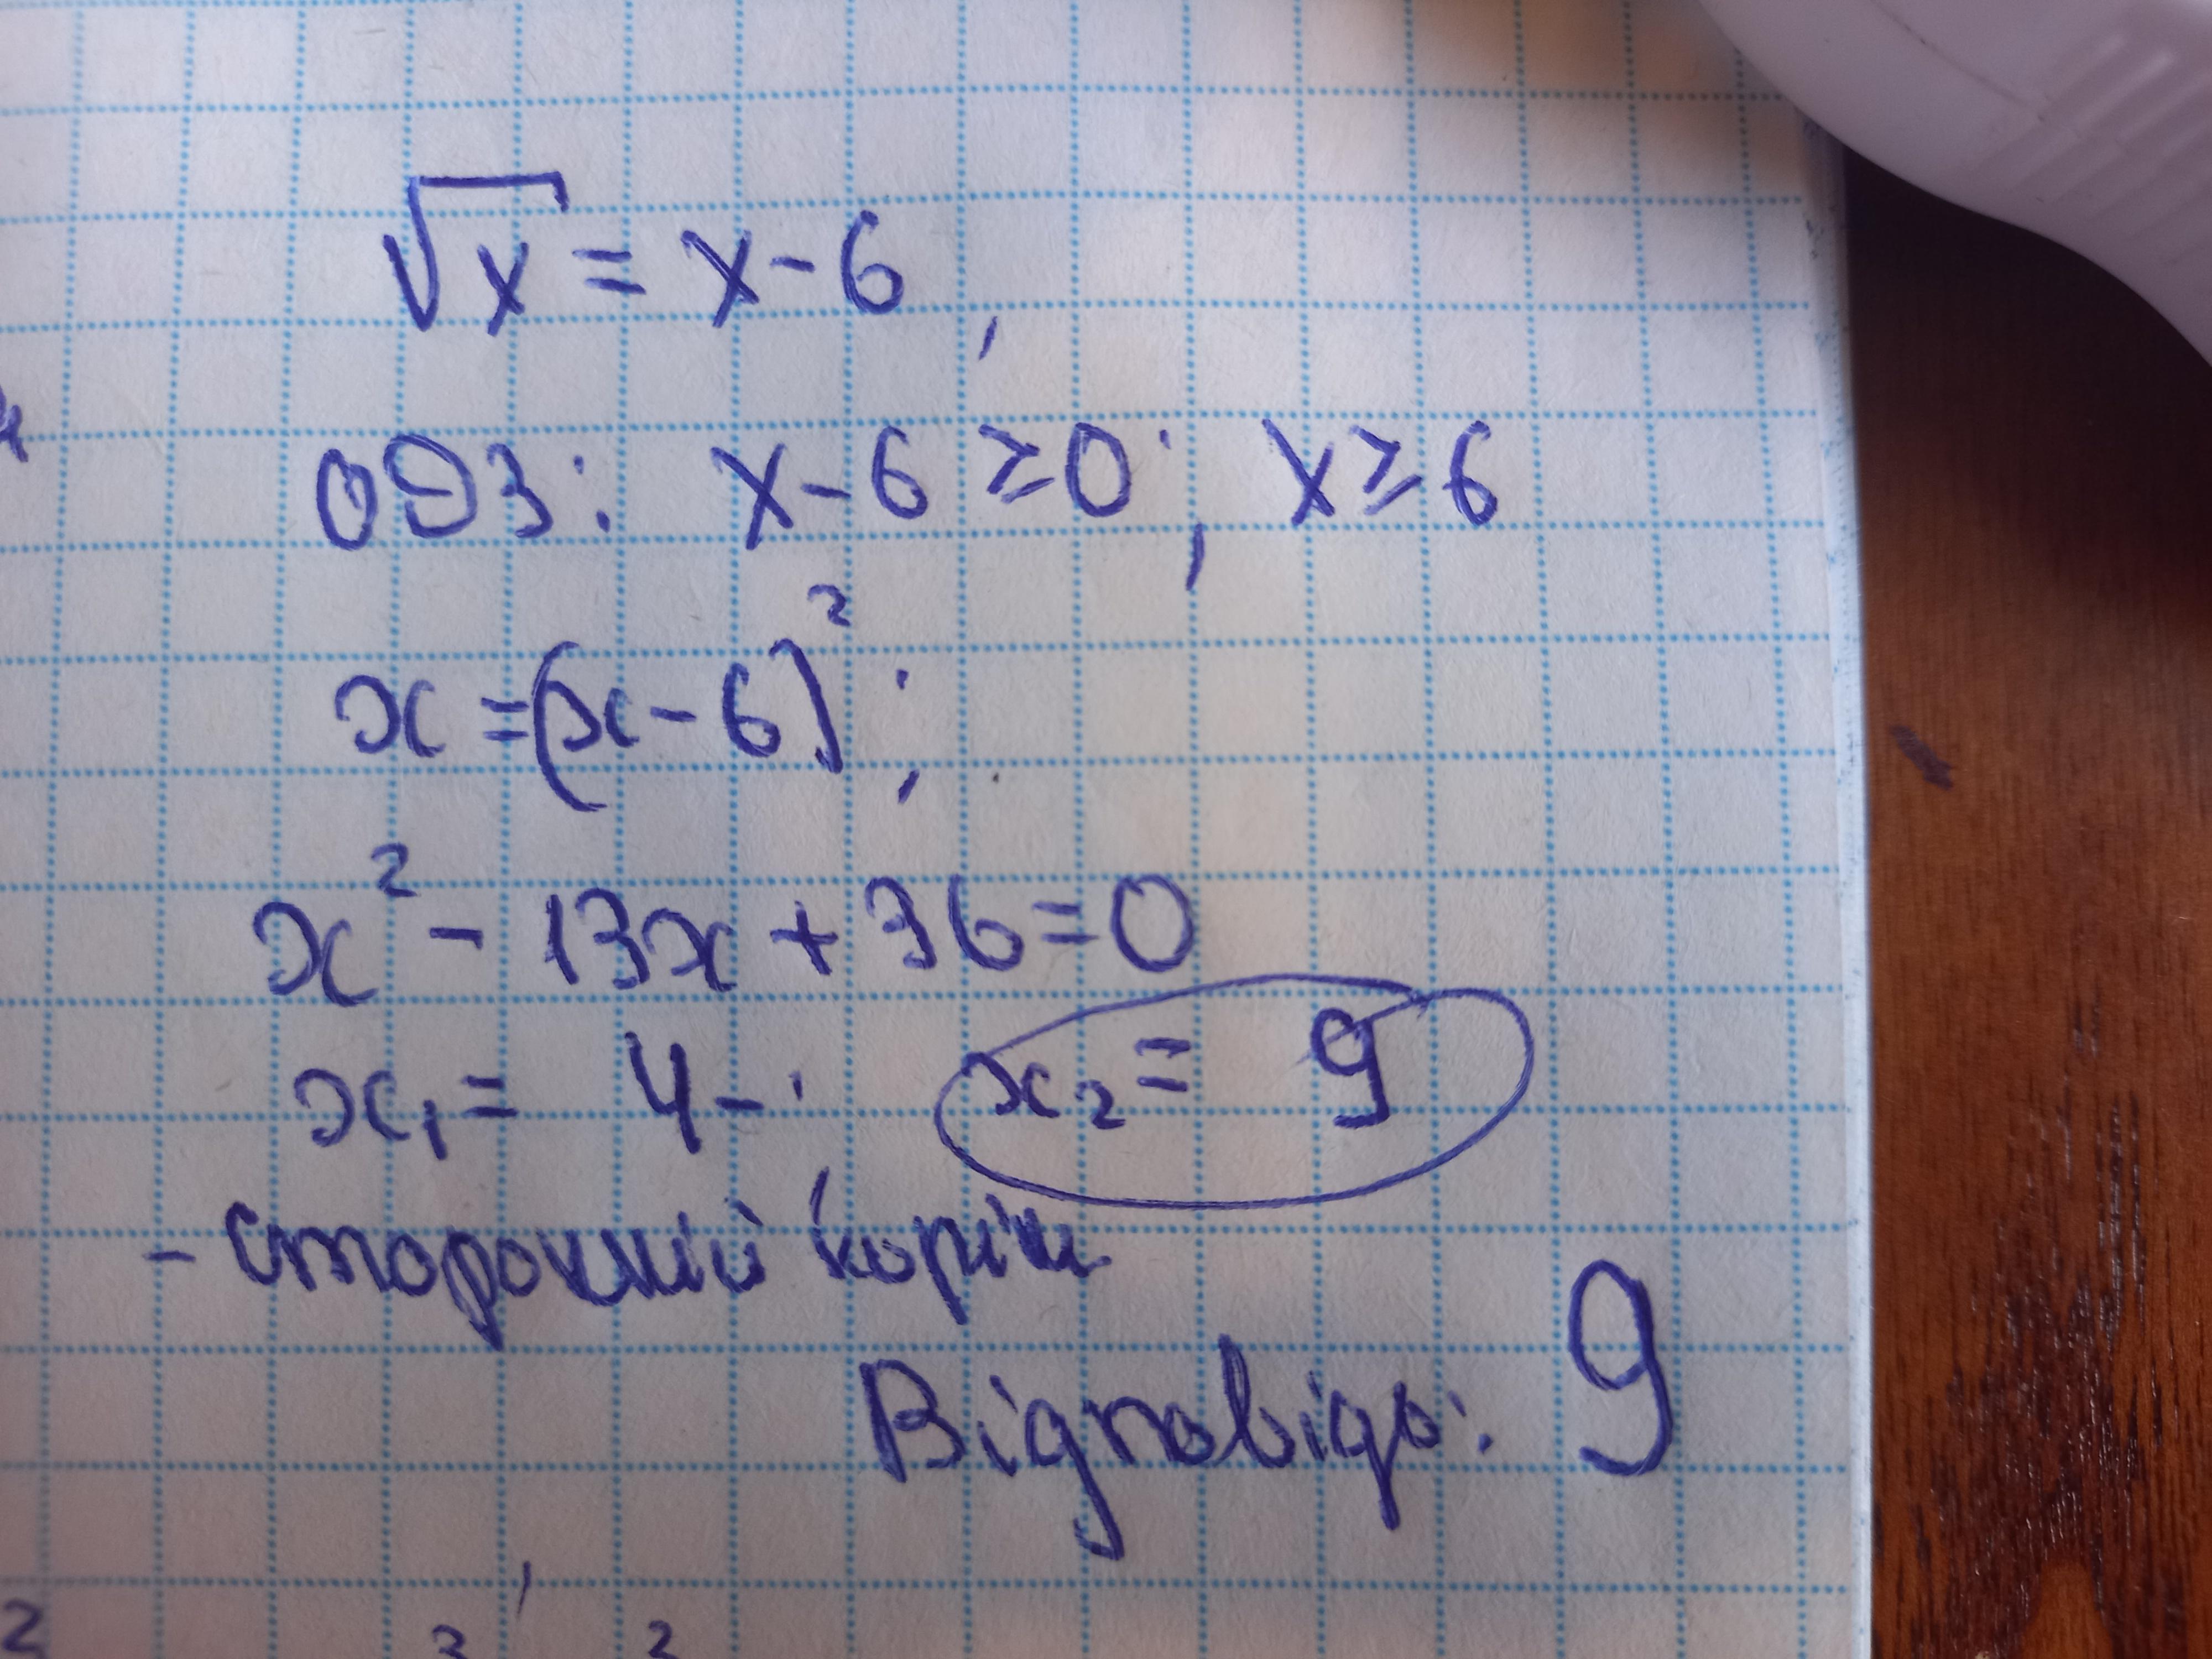 √x = x - 6,
ОДЗ: x - 6 ≥ 0; x ≥ 6
x = (x - 6)²;
x² - 13x + 36 = 0
x₁ = 4 -; x₂ = 9
- сторонній корінь
Відповідь: 9